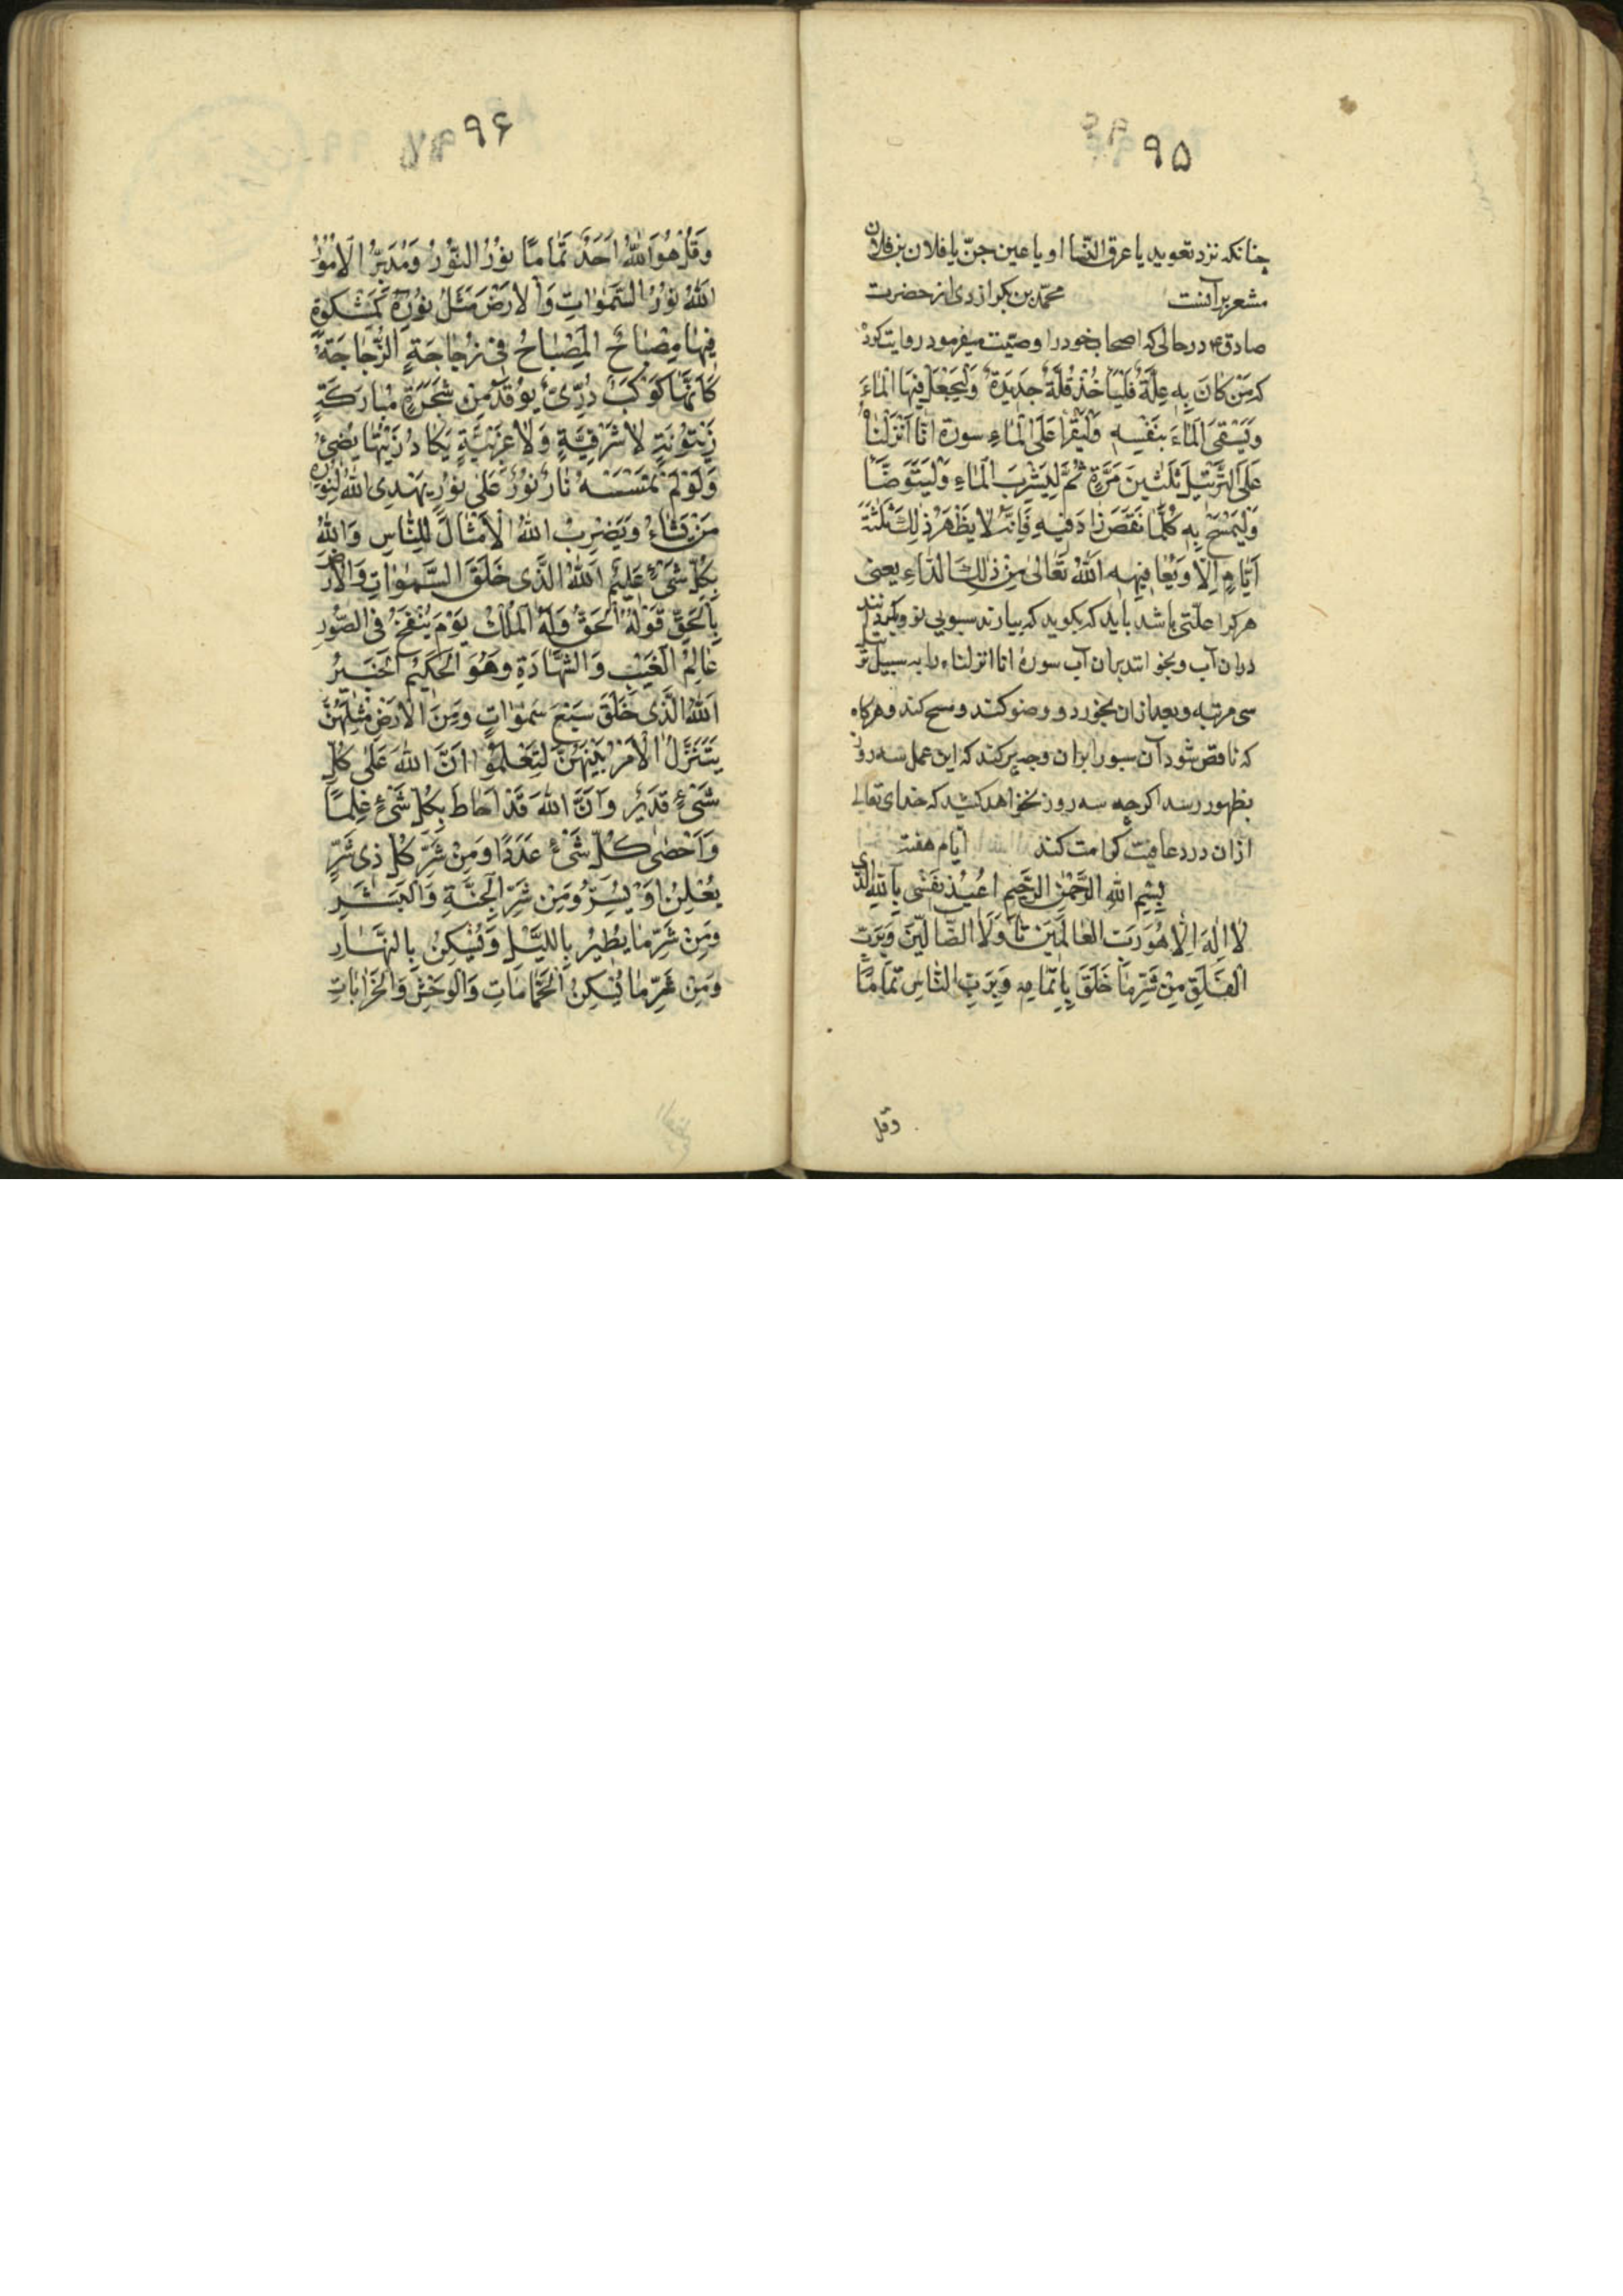 ۹۵
چنانکه نزد تعوید یا عرق النسا او یا عین جن یا فلان بن فلان
مشعر بر آنست محمّد بن بکر ازدی از حضرت
صادق ع در حالی که اصحاب خود را وصیّت میفرمود روایت کرد
که مَن کانَ بِهِ عِلَّةٌ فَلیَأخُذ قُلَّةً جَدیدَةً وَلیَجعَل فیهَا الماءَ
وَیَستَقی الماءَ بِنَفسِهِ وَلیَقرَا عَلَی الماءِ سورة انّا اَنزَلنَاهُ
عَلَی التَّرتیلِ ثَلثینَ مَرَّةٍ ثُمَّ لیَشرِبَ الماءِ وَلیَتَوَضَّا
وَلیَمسَح بِهِ کُلَّمَا نَقَصَ زادَ فیهِ فَاِنَّهُ لا یَظهَرُ ذلِکَ ثَلثَةَ
اَیّامٍ اِلّا وَیُعافیهِ اللهُ تَعالی مِن ذلِکَ الدّاءِ یعنی
هرکرا علتی باشد باید که بکوید که بیارند سبویی نو وکند
دران آب وبخوانند بران آب سورهٔ انا انزلناه را به سبیل ترتیل
سی مرتبه وبعد ازان بخورد و وضو کند و مسح کند و هرکاه
که ناقص شود آن سبو را بران وجه پر کند که این عمل سه روز
بظهور رسد اکرچه سه روز نخواهد کشید که خدای تعالی
ازان درد عافیت کرامت کند ایام هفته
بِسمِ اللهِ الرَّحمنِ الرَّحیمِ اُعیذُ نَفسی بِاللهِ الَّذی
لا اِلهَ اِلّا هُوَ رَبِّ العالَمینَ تا وَلَا الضّالّینَ وَبِرَبِّ
الفَلَقِ مِن شَرِّ ما خَلَقَ بِاتمامِهِ وَبِرَبِّ النّاسِ تَمامًا
وقل
۹۶
وَقُل هُوَ اللهُ اَحَدٌ تَمامًا نورُ النّورِ وَمُدَبِّرُ الاُمورِ
اَللهُ نورُ السَّمواتِ وَالاَرضِ مَثَلُ نورِهِ کَمِشکوةٍ
فیها مِصباحٌ المِصباحُ فی زُجاجَةٍ الزُّجاجَةُ
کَاَنَّها کَوکَبٌ دُرِّیٌّ یوقَدُ مِن شَجَرَةٍ مُبارَکَةٍ
زَیتونَةٍ لا شَرقِیَّةٍ وَلا غَربِیَّةٍ یَکادُ زَیتُها یُضیءُ
وَلَو لَم تَمسَسهُ نارٌ نورٌ عَلی نورٍ یَهدِی اللهُ لِنورِهِ
مَن یَشاءُ وَیَضرِبُ اللهُ الاَمثالَ لِلنّاسِ وَاللهُ
بِکُلِّ شَیءٍ عَلیمٌ اَللهُ الَّذی خَلَقَ السَّمواتِ وَالاَرضَ
بِالحَقِّ قَولُهُ الحَقُّ وَلَهُ المُلکُ یَومَ یُنفَخُ فی الصّورِ
عالِمُ الغَیبِ وَالشَّهادَةِ وَهُوَ الحَکیمُ الخَبیرُ
اَللهُ الَّذی خَلَقَ سَبعَ سَمواتٍ وَمِنَ الاَرضِ مِثلَهُنَّ
یَتَنَزَّلُ الاَمرُ بَینَهُنَّ لِتَعلَموا اَنَّ اللهَ عَلی کُلِّ
شَیءٍ قَدیرٌ وَاَنَّ اللهَ قَد اَحاطَ بِکُلِّ شَیءٍ عِلمًا
وَاَحصی کُلَّ شَیءٍ عَدَدًا وَمِن شَرِّ کُلِّ ذی شَرٍّ
یُعلِنُ اَو یُسِرُّ وَمِن شَرِّ الجِنَّةِ وَالبَشَرِ
وَمِن شَرِّ ما یَطیرُ بِاللَّیلِ وَیَسکُنُ بِالنَّهارِ
وَمِن شَرِّ ما یَسکُنُ الحَمّاماتِ وَالوَحشَ وَالخَراباتِ